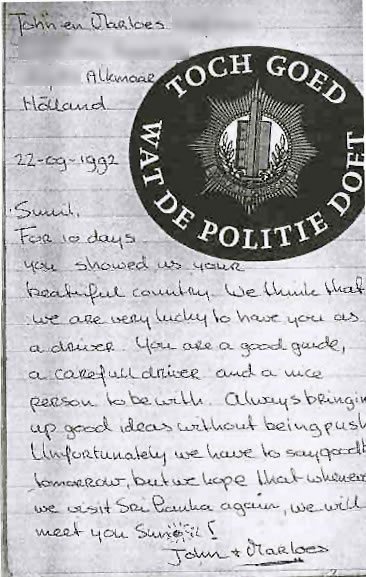 John en Marloes
Alkmaar
Holland
TOCH GOED
WAT DE POLITIE DOET
22-09-1992
Sunil,
For 10 days
you showed us your
beatiful country. We think that
we are very lucky to have you as
a driver. You are a good guide,
a carefull driver and a nice
person to be with. Always bringin
up good ideas without being push
Unfortunately we have to say goodb
tomorrow, but we hope that wheneve
we visit Sri Lanka again, we will
meet you Sunil!
John + Marloes